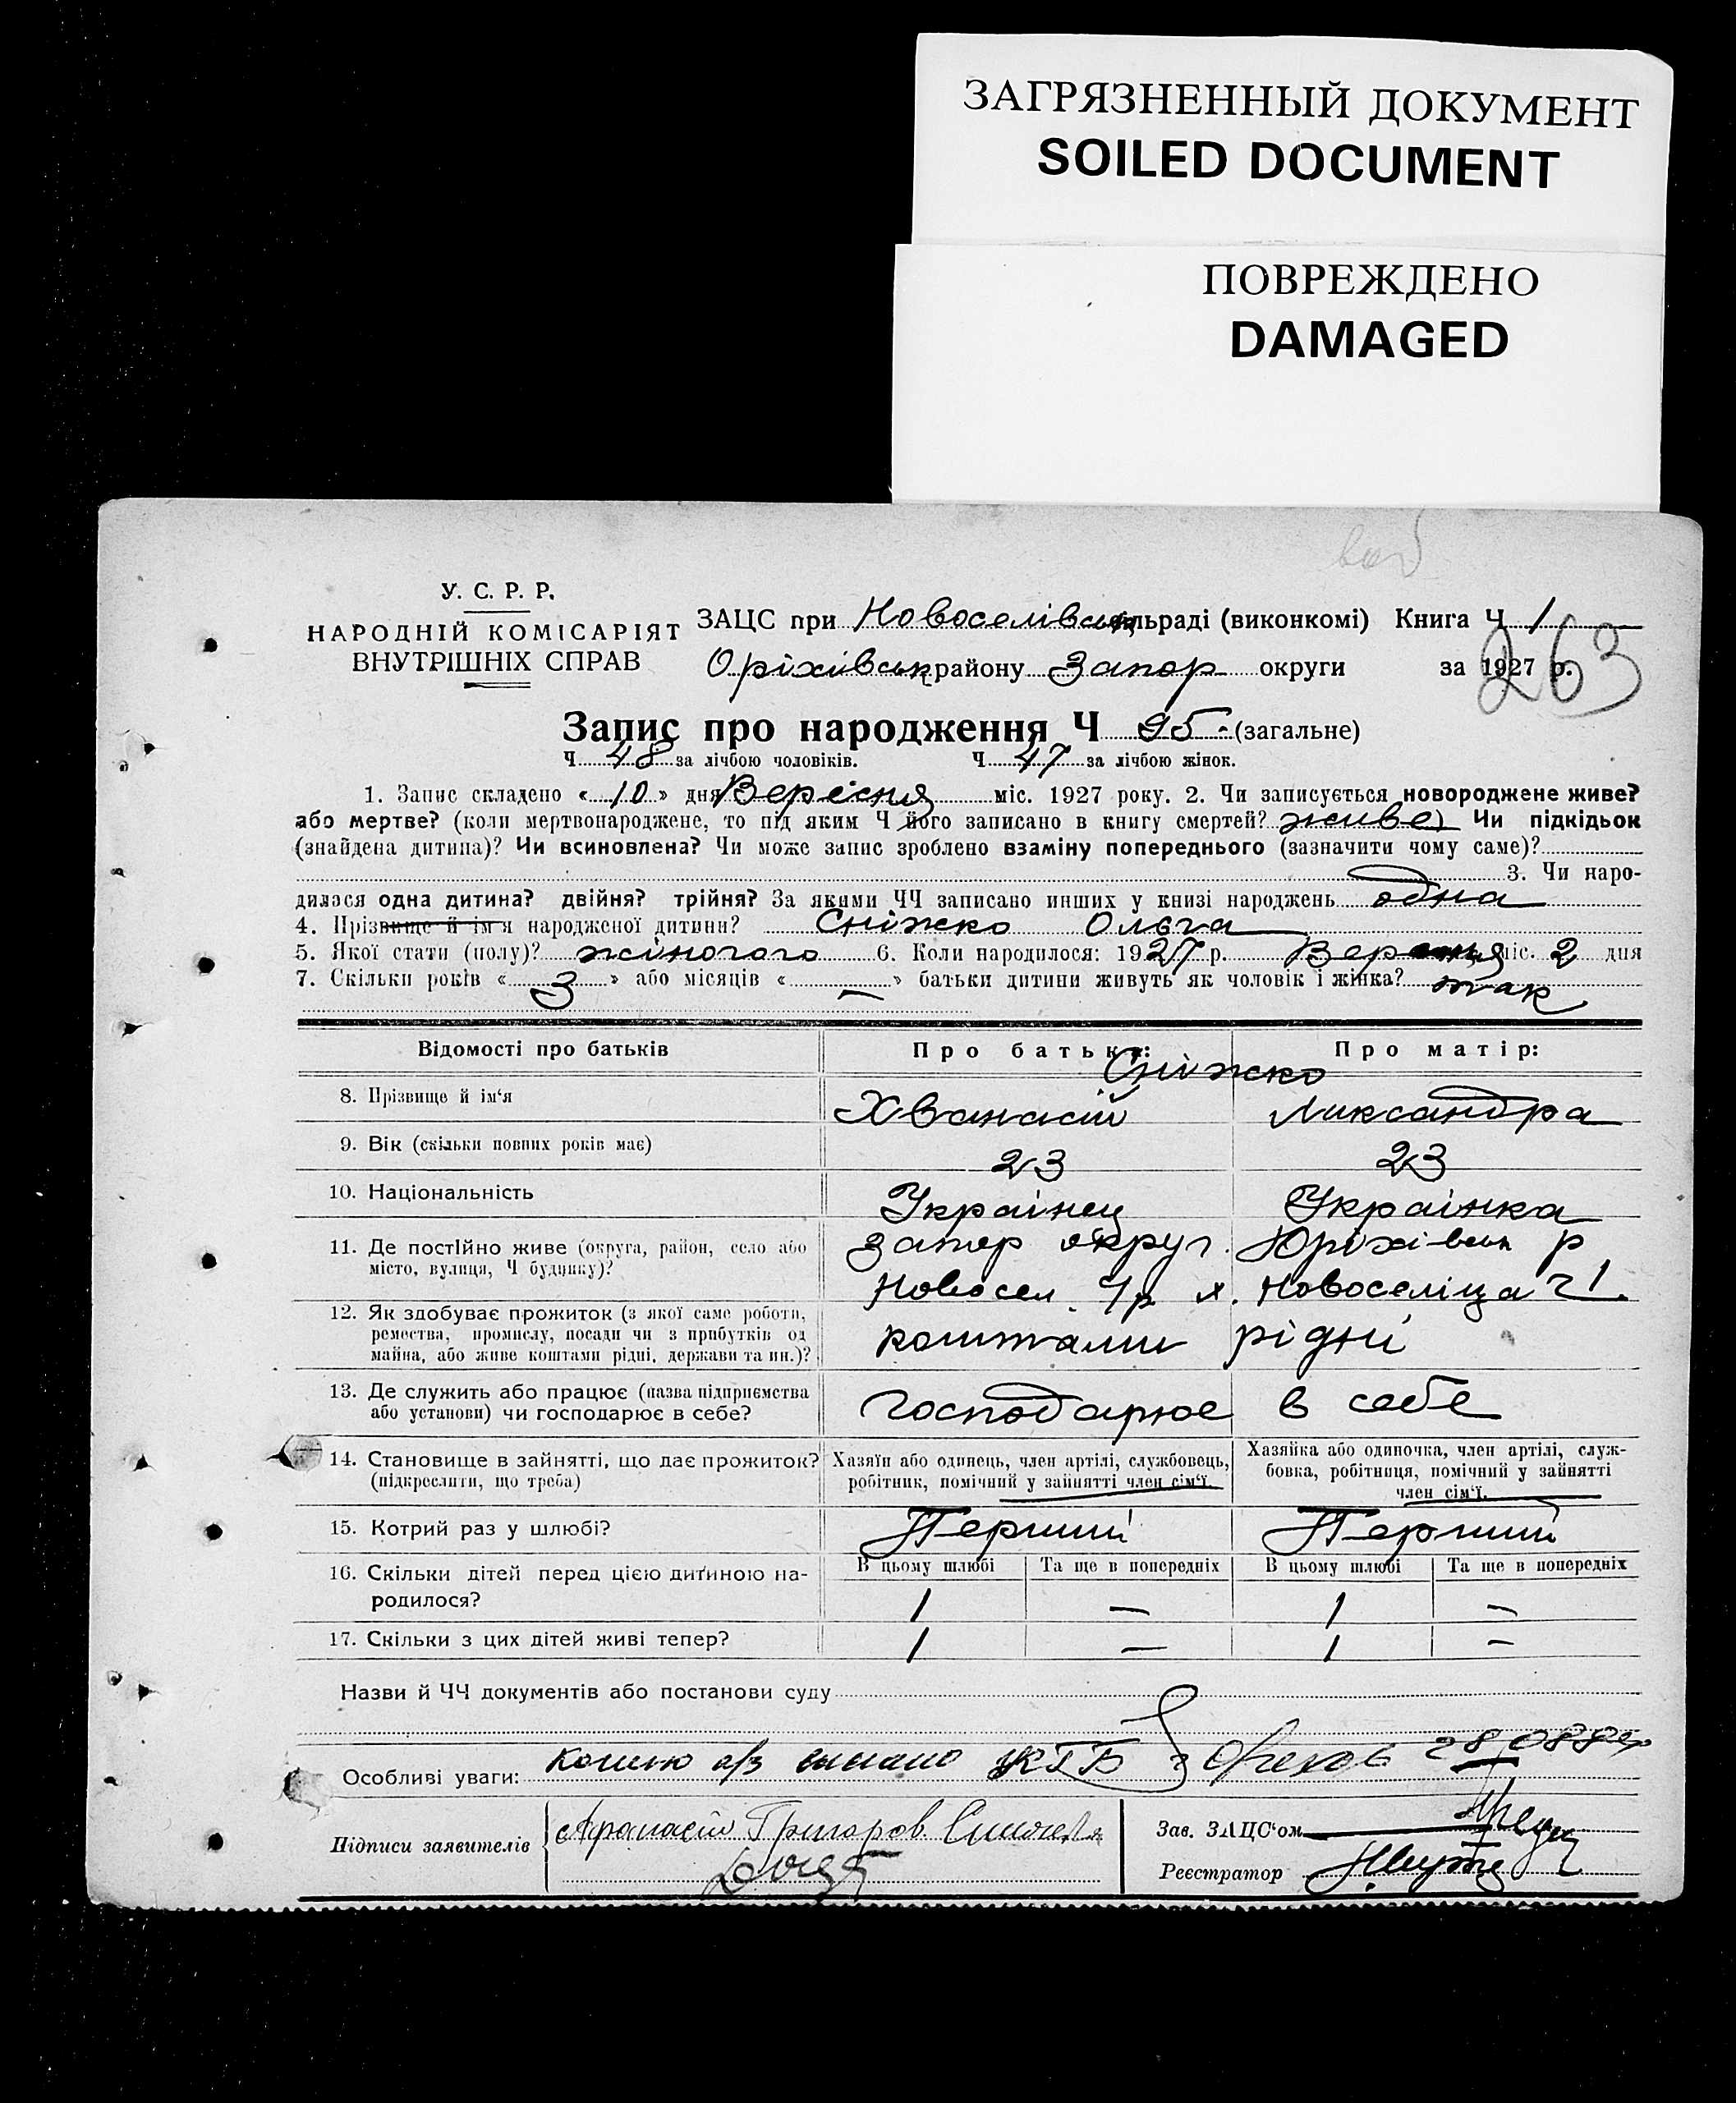 ЗАГРЯЗНЕННЫЙ ДОКУМЕНТ
SOILED DOCUMENT
ПОВРЕЖДЕНО
DAMAGED
У. С. Р. Р.
НАРОДНІЙ КОМІСАРІЯТ
ВНУТРІШНІХ СПРАВ
ЗАЦС при Новоселівськ сільраді (виконкомі) Книга Ч 1
Оріхівськ району Запор округи за 1927 р.
263
Запис про народження Ч 95 (загальне)
Ч 48 за лічбою чоловіків. Ч 47 за лічбою жінок.
1. Запис складено « 10 » дня Вересня міс. 1927 року. 2. Чи записується новороджене живе?
або мертве? (коли мертвонароджене, то під яким Ч його записано в книгу смертей? живе) Чи підкідьок
(знайдена дитина)? Чи всиновлена? Чи може запис зроблено взаміну попереднього (зазначити чому саме)?
3. Чи наро-
дилося одна дитина? двійня? трійня? За якими ЧЧ записано инших у книзі народжень одна
4. Прізвище й ім'я народженої дитини? Сніжко Ольга
5. Якої стати (полу)? жіночого 6. Коли народилося: 1927 р. Вересня міс. 2 дня
7. Скільки років « 3 » або місяців « — » батьки дитини живуть як чоловік і жінка? так
Відомості про батьків Про батька: Про матір:
Сніжко
8. Прізвище й ім'я Хванасій Ликсандра
9. Вік (скільки повних років має) 23 23
10. Національність Українец Українка
11. Де постійно живе (округа, район, село або місто, вулиця, Ч будинку)? Запор округ. Юріхівськ р
Новосел. с/р х. Новоселіца ч 1.
12. Як здобуває прожиток (з якої саме роботи,
ремества, промислу, посади чи з прибутків од
майна, або живе коштами рідні, держави та ин.)? коштами рідні
13. Де служить або працює (назва підприємства
або установи) чи господарює в себе? господарює в себе
14. Становище в зайнятті, що дає прожиток?
(підкреслити, що треба)
Хазяїн або одинець, член артілі, службовець,
робітник, помічний у зайнятті член сім'ї.
Хазяйка або одиночка, член артілі, служ-
бовка, робітниця, помічний у зайнятті
член сім'ї.
15. Котрий раз у шлюбі? Перший Перший
В цьому шлюбі Та ще в попередніх В цьому шлюбі Та ще в попередніх
16. Скільки дітей перед цією дитиною на-
родилося? 1 — 1 —
17. Скільки з цих дітей живі тепер? 1 — 1 —
Назви й ЧЧ документів або постанови суду
Особливі уваги: Копию а/з
Підписи заявителів Афанасій Григоров
Зав. ЗАЦС'ом
Реєстратор